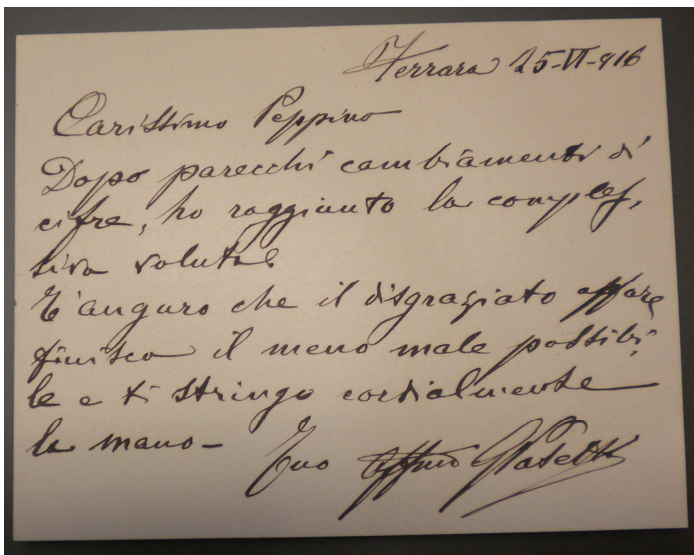 Ferrara 25-VI-916
Carissimo Peppino
Dopo parecchi cambiamenti di
cifre, ho raggiunto la comples,
siva voluta.
T'auguro che il disgraziato affare
finisca il meno male possibi,
le e ti stringo cordialmente
la mano-
Tuo affmo